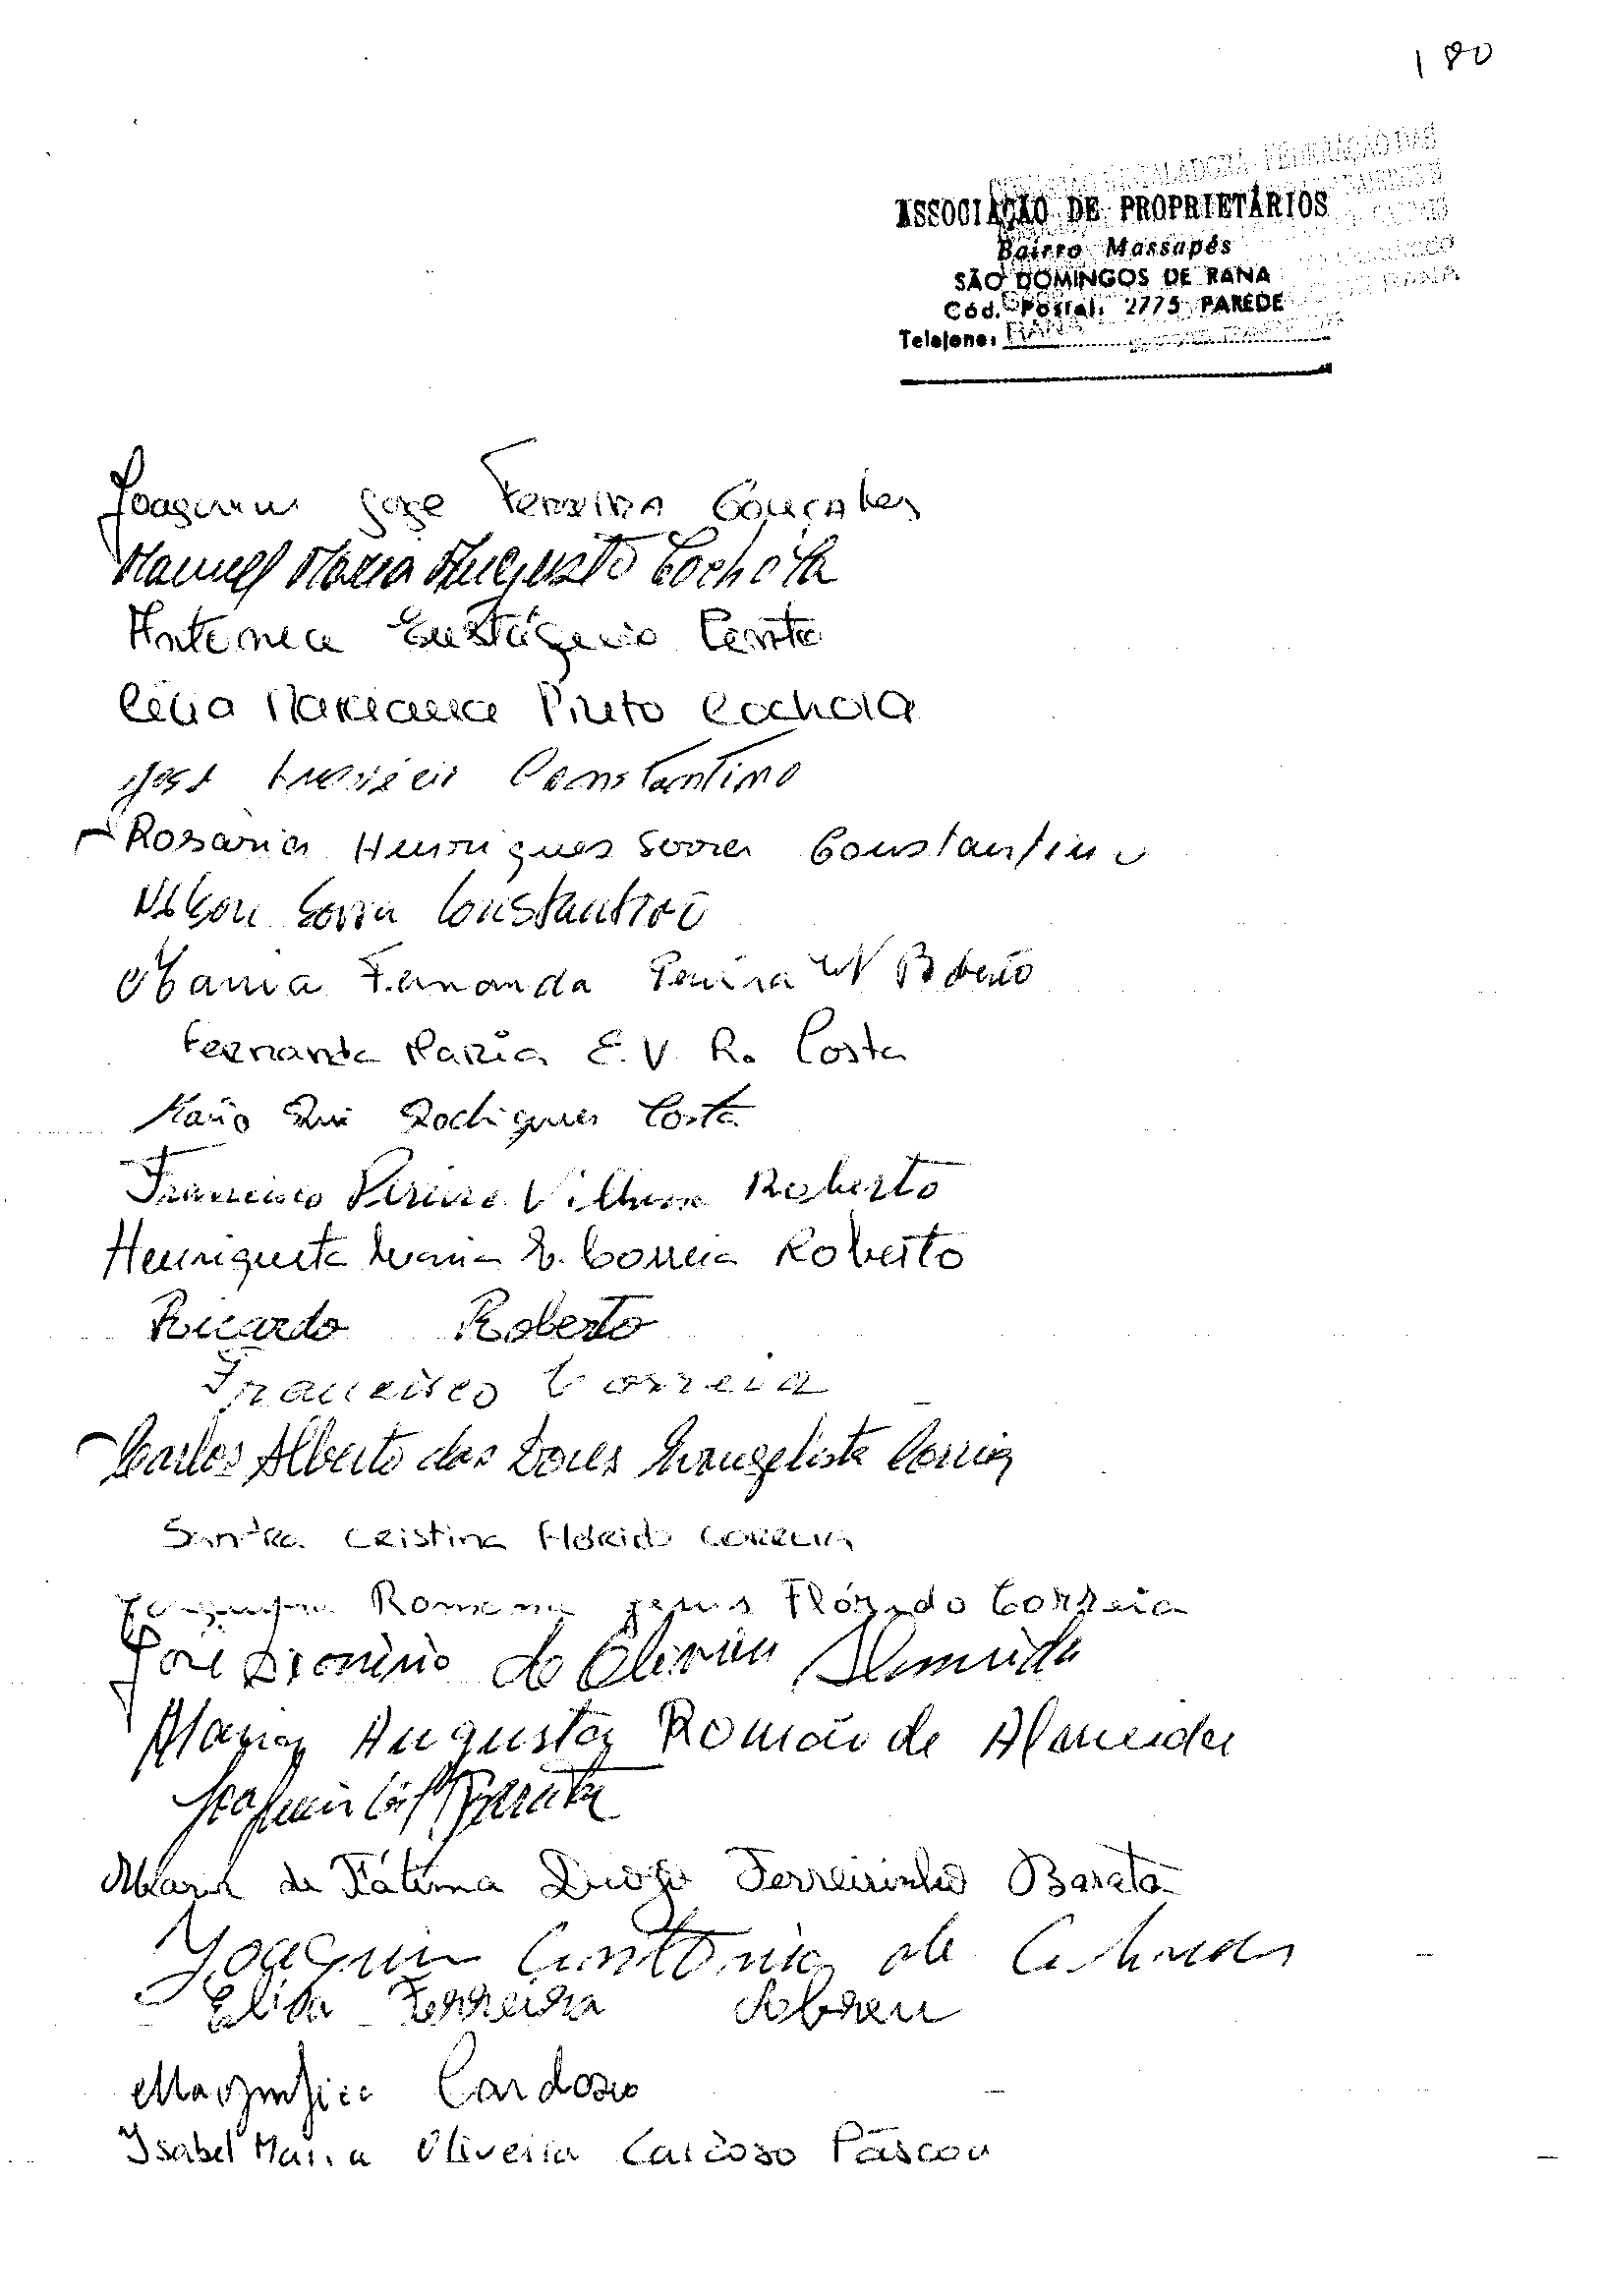 180
ASSOCIAÇÃO DE PROPRIETÁRIOS
Bairro Massapés
SÃO DOMINGOS DE RANA
Cód. Postal: 2775 PAREDE
Telefone:
Joaquim José Ferreira Gonçalves
Manuel Maria Augusto Cochola
Antonia Eustáquio
Célia Mariana Pinto Cochola
José Constantino
Rosaria Henriques Serra Constantino
Nelson Serra Constantino
Maria Fernanda Pereira
Fernanda Maria E. V. R. Costa
Mário Rui Rodrigues Costa
Francisco Pereira Vilhena Roberto
Henriqueta Maria E. Correia Roberto
Ricardo Roberto
Francisco Correia
Carlos Alberto das Dores Evangelista Correia
Sandra Cristina Florido Correia
Romana Jesus Flórido Correia
José Dionísio de Oliveira Almeida
Maria Augusta Romão de Almeida
Joaquim Barata
Maria de Fátima Diogo Ferreirinho Barata
Joaquim Antonio de
Elisa Ferreira Abreu
Cardoso
Isabel Maria Oliveira Cardoso Páscoa